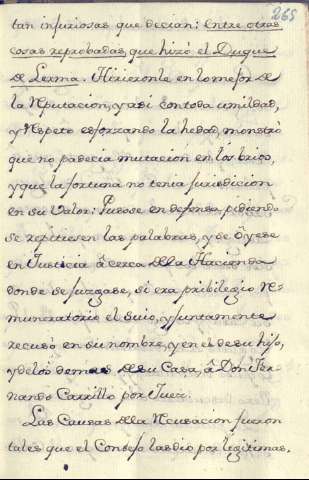 265
tan injuriosas que decian: entre otras
cosas reprobadas, que hizó el Duque
de Lerma. Hirieronle en lo mejor de
la Reputacion, y asi con toda umildad,
y Respeto esforzando la hedad, monstró
que no padecia mutacion en los brios,
y que la fortuna no tenia jurisdicion
en su Valor: Pusose en defensa, pidiendo
se repitiesen las palabras, y se óyese
en Justicia â cerca de la Hacienda
donde se juzgase, si era pribilegio Re-
muneratorio el suio, y juntamente
recusó en su nombre, y en el de su hijo,
y de los demas de su Casa, â Don Fer-
nando Carrillo por Juez.
Las Causas de la Recusacion fueron
tales que el Consejo las dio por legitimas,